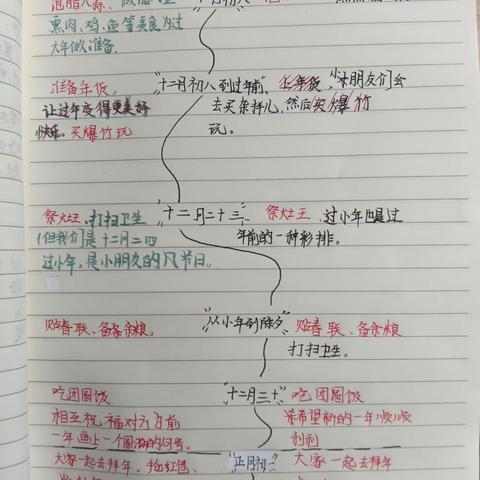 熏肉、鸡、鱼等美食为过
大年做准备.
准备年货,
让过年变得更美好
快乐.买爆竹玩
"十二月初八到过年前、
小朋友们会
去买杂拌儿,然后买爆竹
玩。
祭灶王、打扫卫生
(但我们是十二月二四
过小年,是小朋友的
节日。
"十二月二十三"
祭灶王、过小年也是过
年前的一种彩排。
贴春联、备杂粮。
"从小年到除夕"
贴春联、备杂粮
打扫卫生。
吃团圆饭
相互祝福对方为前
一年画上一个圆满的句号。
"十二月三十"
吃团圆饭
希望新的一年顺顺
利利
大家一起去拜年,
红包、
"正月初一"
大家一起去拜年